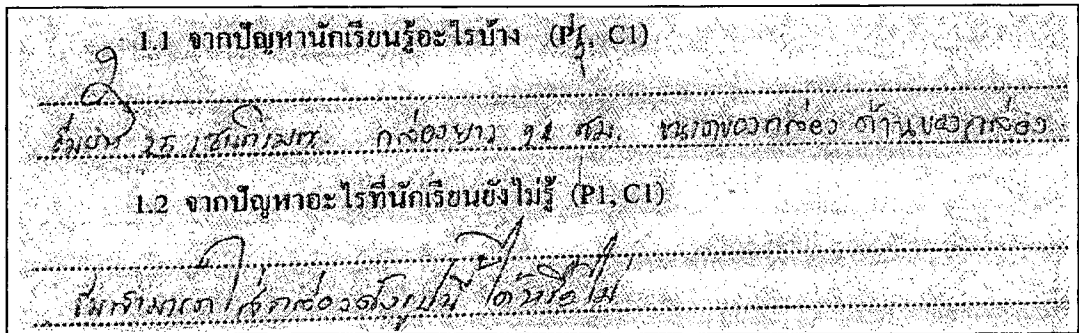 1.1 จากปัญหานักเรียนรู้อะไรบ้าง (P1, C1)
ร่มยาว 25 เซนติเมตร. กล่องยาว 21 ซม. ขนาดของกล่อง ด้านของกล่อง
1.2 จากปัญหาอะไรที่นักเรียนยังไม่รู้ (P1, C1)
ร่มสามารถใส่กล่องดังรูปนี้ได้หรือไม่